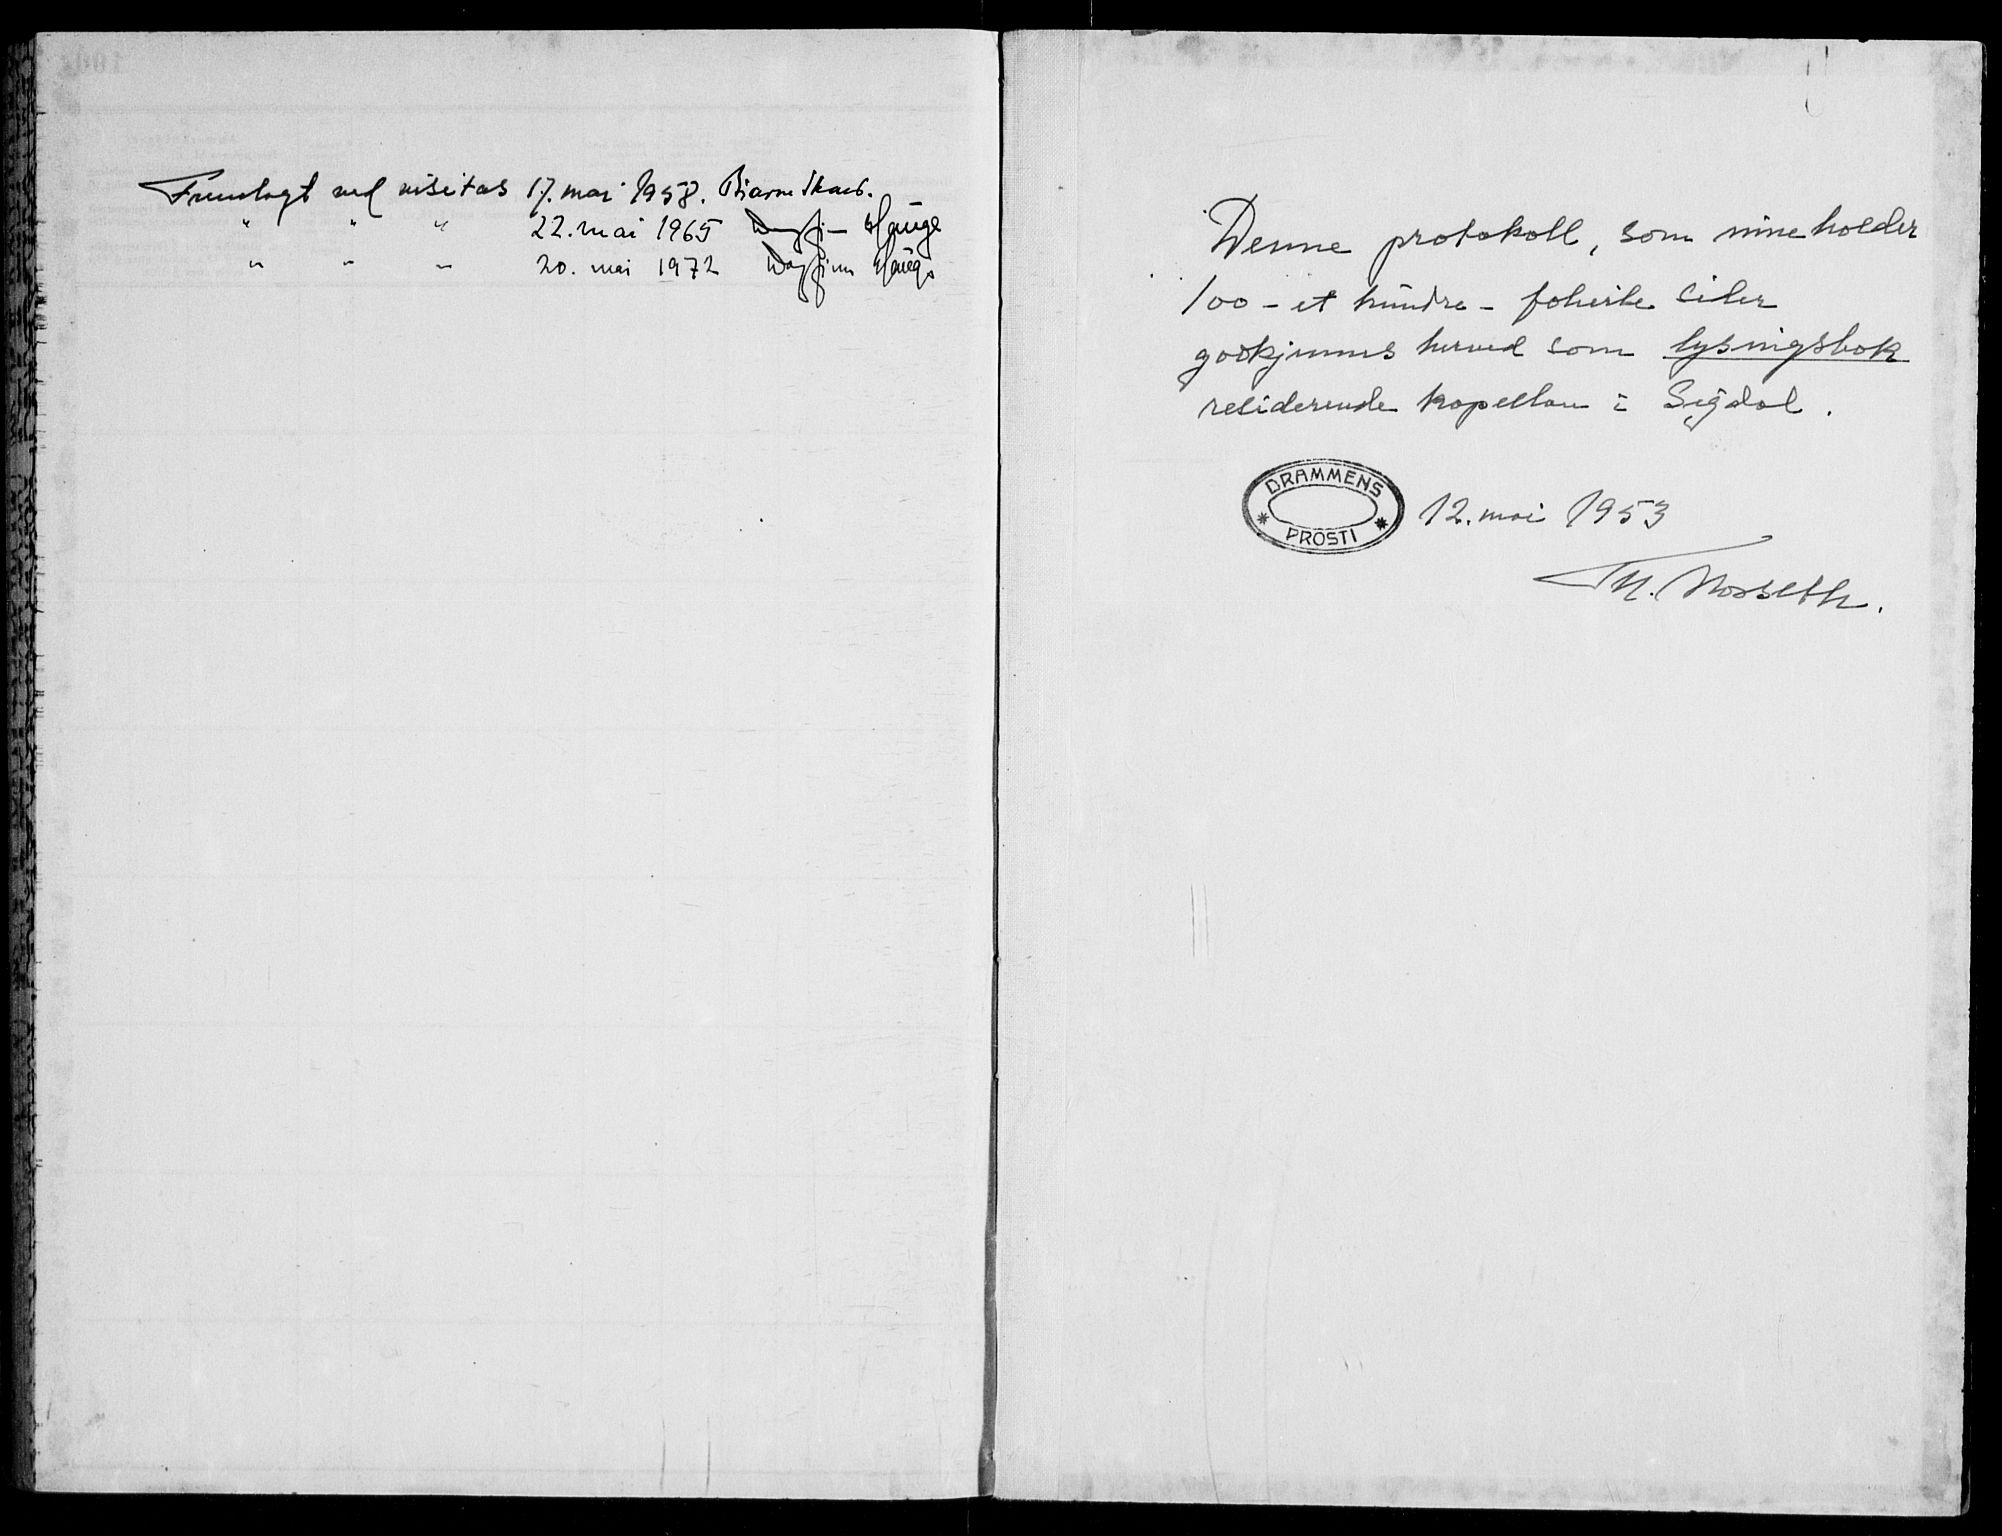 Fremlagt ved visitas 17. mai 1958. Bjarne Skard.
" " " 22. mai 1965 Dagfinn Hauge
" " " 20. mai 1972 Dagfinn Hauge
Denne protokoll, som inneholder
100 - et hundre - folierte sider
godkjennes herved som lysningsbok
residerende kapellan i Sigdal.
DRAMMENS
PROSTI
12. mai 1953
Th. Norseth.
100